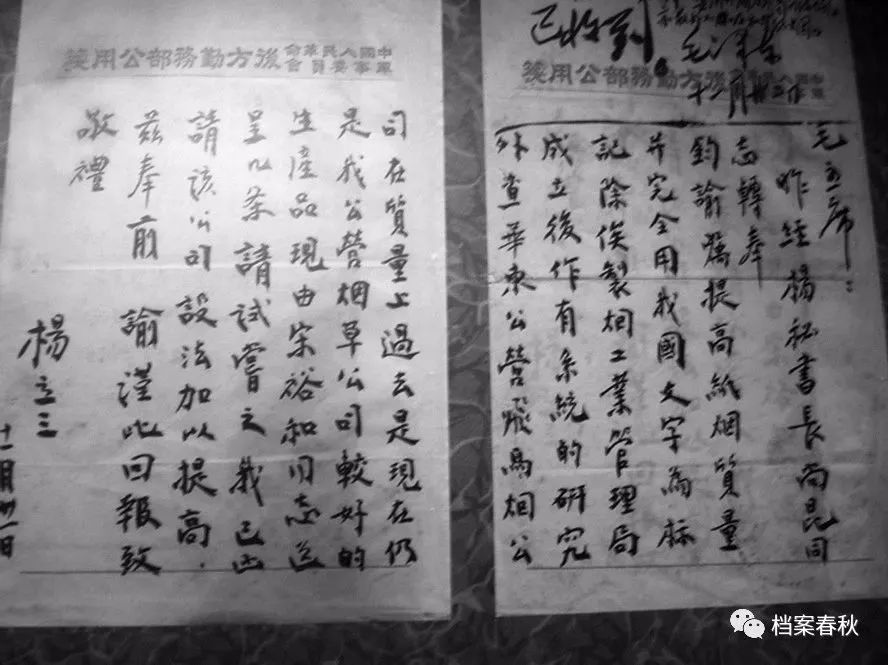 已收到
毛澤東
後方勤務部公用箋
毛主席：
昨經楊秘書長尚昆同
志轉奉
鈞諭囑提高紙烟質量
并完全用我國文字為标
記除俟製烟工業管理局
成立後作有系統的研究
外查華東公營飛馬烟公
中國人民革命軍事委員會後方勤務部公用箋
司在質量上過去是現在仍
是我公營烟草公司較好的
生產品現由宋裕和同志送
呈八条請試嘗之我已函
請該公司設法加以提高.
茲奉前 諭謹此回報致
敬禮
楊立三
档案春秋